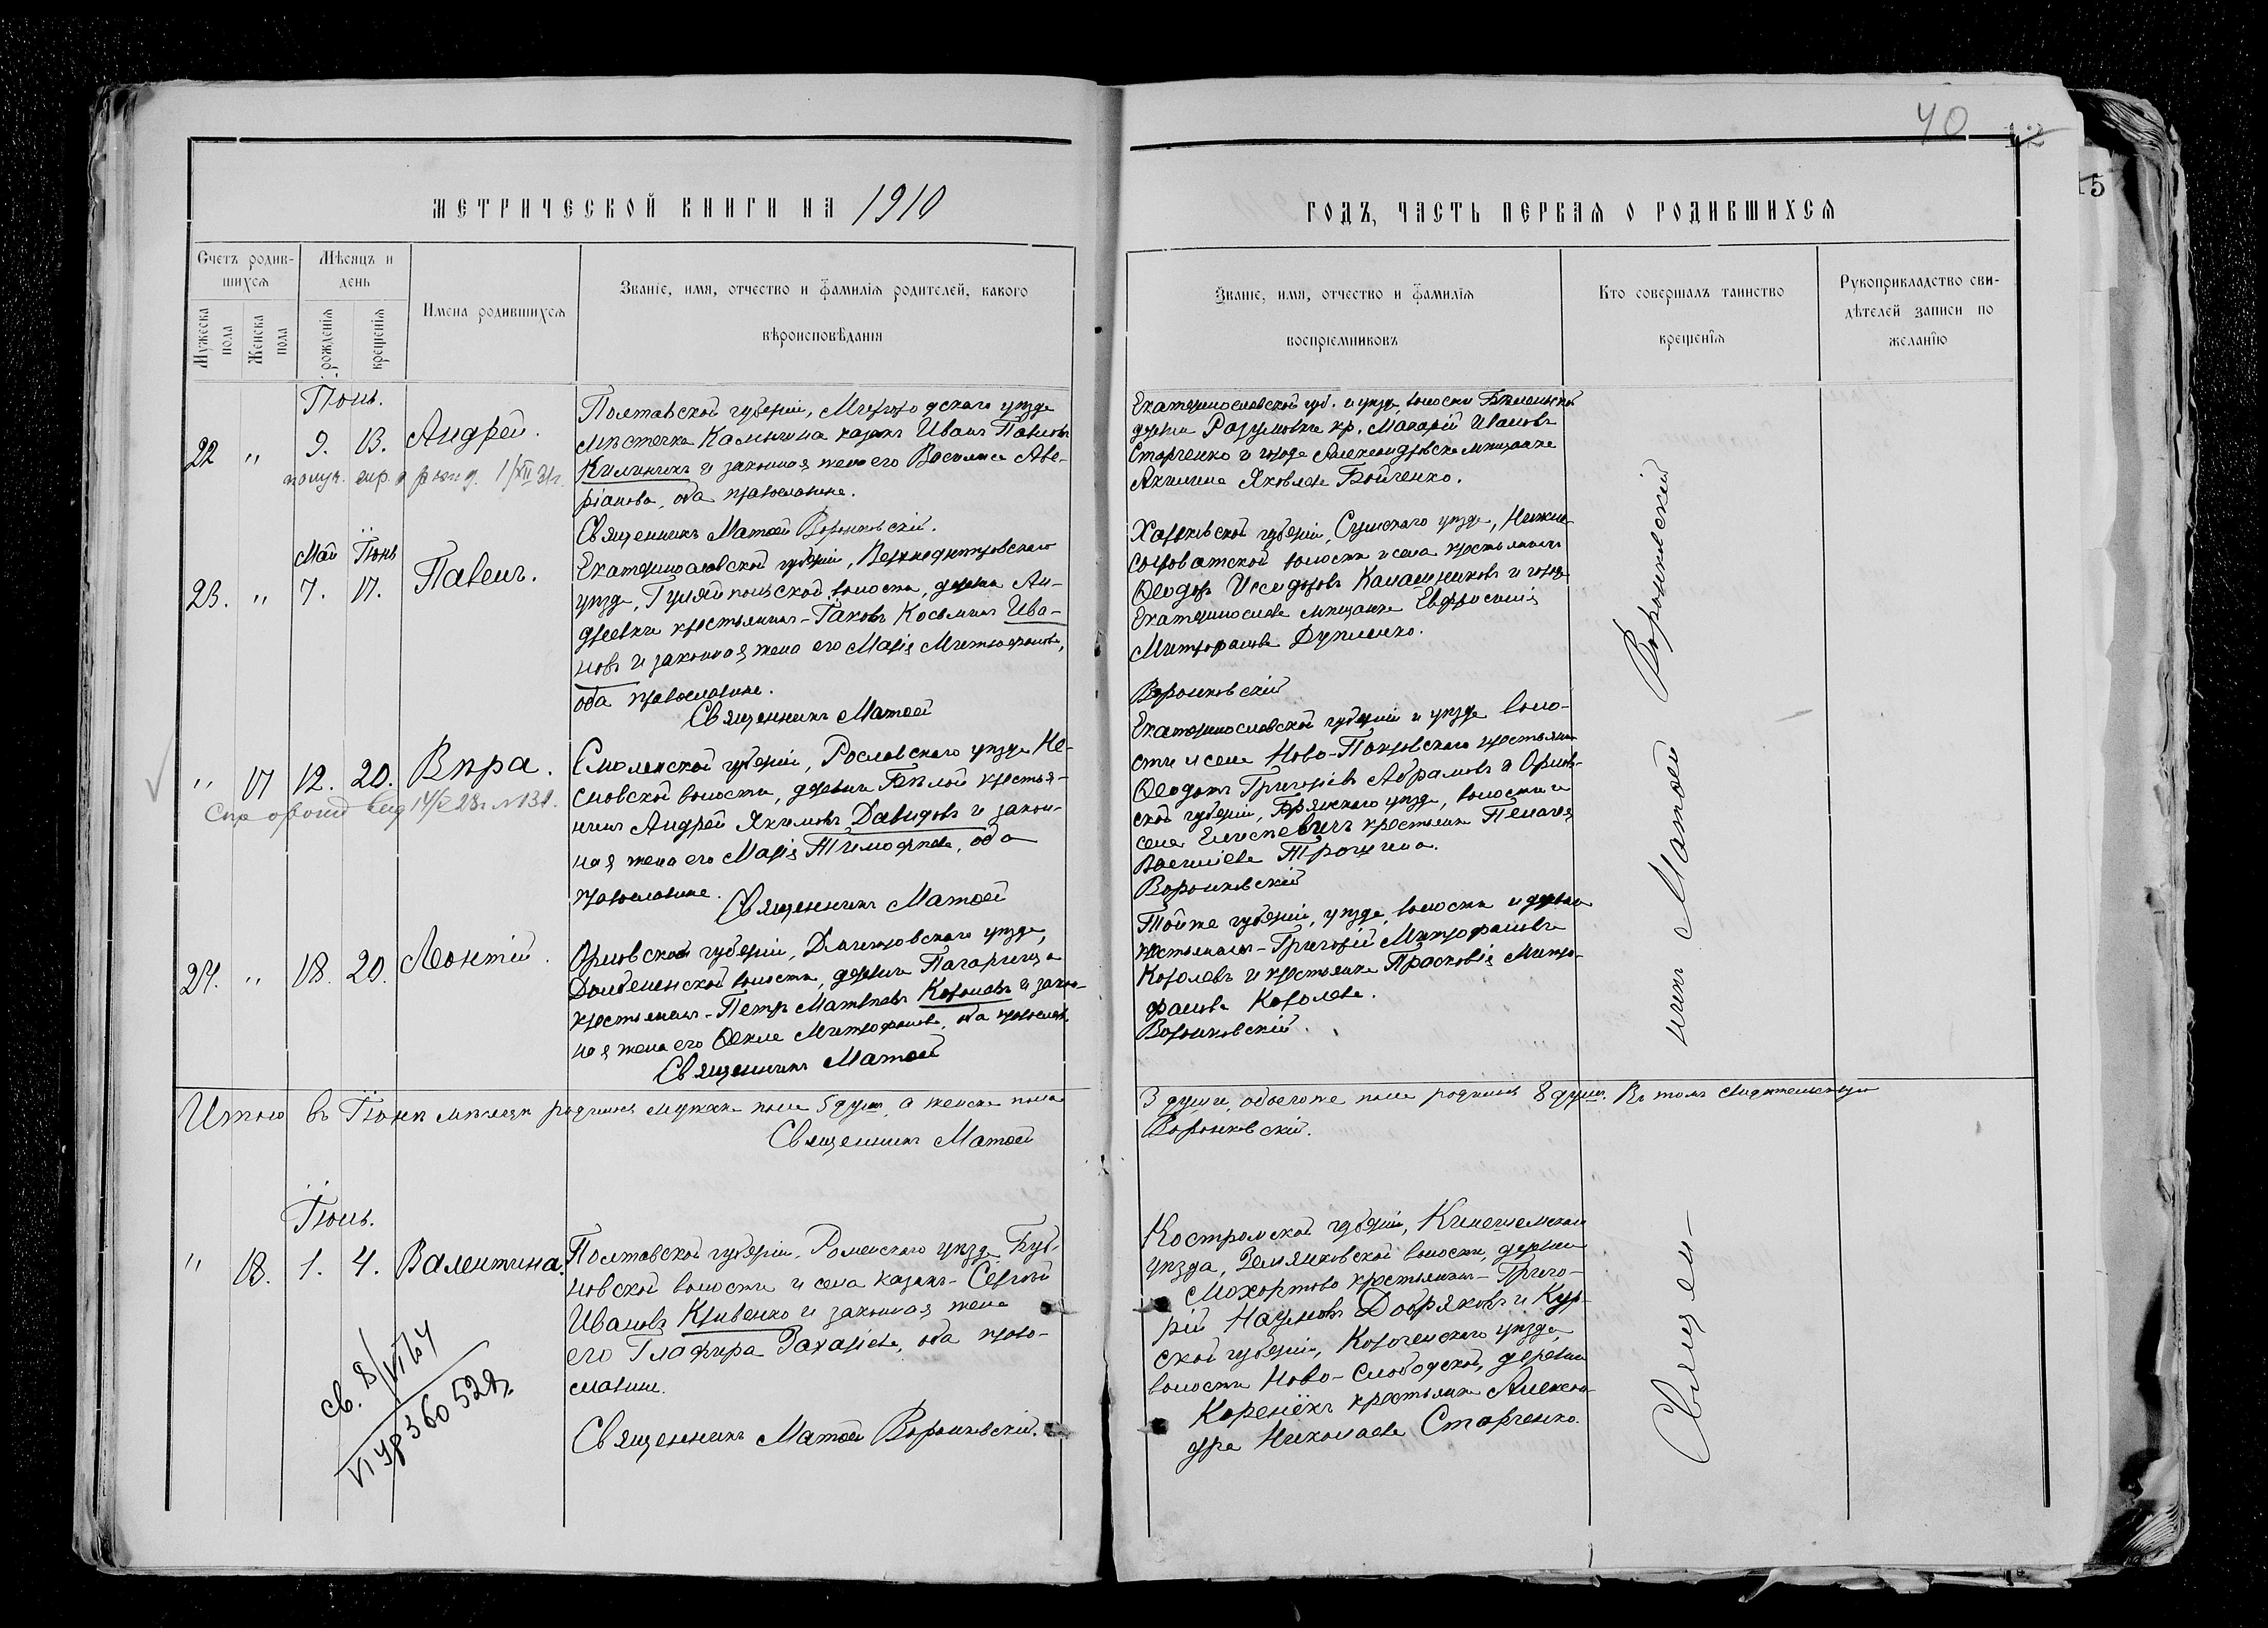 40
12
15
МЕТРИЧЕСКОЙ КНИГИ НА 1910
ГОДЪ, ЧАСТЬ ПЕРВАЯ О РОДИВШИХСЯ
Счетъ родив-
шихся
Мужеска
пола
Женска
пола
Мѣсяцъ и
день
рожденія
крещенія
Имена родившихся
Званіе, имя, отчество и фамилія родителей, какого
вѣроисповѣданія
Званіе, имя, отчество и фамилія
воспріемниковъ
Кто совершалъ таинство
крещенія
Рукоприкладство сви-
дѣтелей записи по
желанію
Іюнь.
22 " 9. 13. Андрей.
Полтавской губерніи, Миргородскаго уѣзда
мѣстечка Камышна казакъ Иванъ Павловъ
Килиникъ и законная жена его Василиса Аве-
ріанова, оба православные.
Священникъ Матѳей Воронковскій.
Екатеринославской губ. и уѣзда, волости Бѣленьской
деревни Разумовки кр. Макарій Ивановъ
Старченко и города Александровска мѣщанка
Акилина Яковлева Бойченко.
Май Іюнь
23. " 7. 17. Павелъ.
Екатеринославской губерніи, Верхнеднѣпровскаго
уѣзда, Гуляйпольской волости, деревни Ан-
дреевки крестьянинъ - Іаковъ Косьминъ Ива-
новъ и законная жена его Марія Митрофанова,
оба православные.
Священникъ Матѳей
Харьковской губерніи, Сумскаго уѣзда, Нижне-
сыроватской волости и села крестьянинъ
Ѳеодоръ Исидоровъ Калашниковъ и города
Екатеринослава мѣщанка Евфросинія
Митрофанова Дупленко.
Воронковскій
" 17 12. 20. Вѣра.
14/V 28г. №131.
Смоленской губерніи, Рославскаго уѣзда Не-
сновской волости, деревни Бѣлой крестья-
нинъ Андрей Якимовъ Давидовъ и закон-
ная жена его Марія Тимофеева, оба
православные.
Священникъ Матѳей
Екатеринославской губерніи и уѣзда воло-
сти и села Ново-Покровскаго крестьянинъ
Ѳеодотъ Григоріевъ Абрамовъ и Орлов-
ской губерніи, Брянскаго уѣзда, волости и
села Елисеевичъ крестьянка Пелагея
Василіева Трошина.
Воронковскій
24. " 18. 20. Леонтій.
Орловской губерніи, Дмитровскаго уѣзда,
Долбенкинской волости, деревни Погарища
крестьянинъ - Петръ Матвѣевъ Королевъ и закон-
ная жена его Ѳекла Митрофанова, оба православн.
Священникъ Матѳей
Той же губерніи, уѣзда, волости и деревни
крестьянинъ - Григорій Митрофановъ
Королевъ и крестьянка Прасковія Митро-
фанова Королева.
Воронковскій.
Итого въ Іюнѣ мѣсяцѣ родилось мужска пола 5 душъ, а женска пола
3 души, обоего же пола родилось 8 душъ. Въ томъ свидѣтельствую
Священникъ Матѳей
Воронковскій.
Іюль.
" 18. 1. 4. Валентина.
Полтавской губерніи, Роменскаго уѣзда Буб-
новской волости и села казакъ - Сергій
Ивановъ Кривенко и законная жена
его Глафира Захаріева, оба право-
славные.
Священникъ Матѳей Воронковскій.
Костромской губерніи, Кинешемскаго
уѣзда, Землянковской волости, деревни
Мохортово крестьянинъ - Григо-
рій Наумовъ Добряковъ и Кур-
ской губерніи, Корочанскаго уѣзда,
волости Ново-Слободской, деревни
Коренёкъ крестьянка Алексан-
дра Николаева Старченко.
Священ-
никъ Матѳей Воронковскій